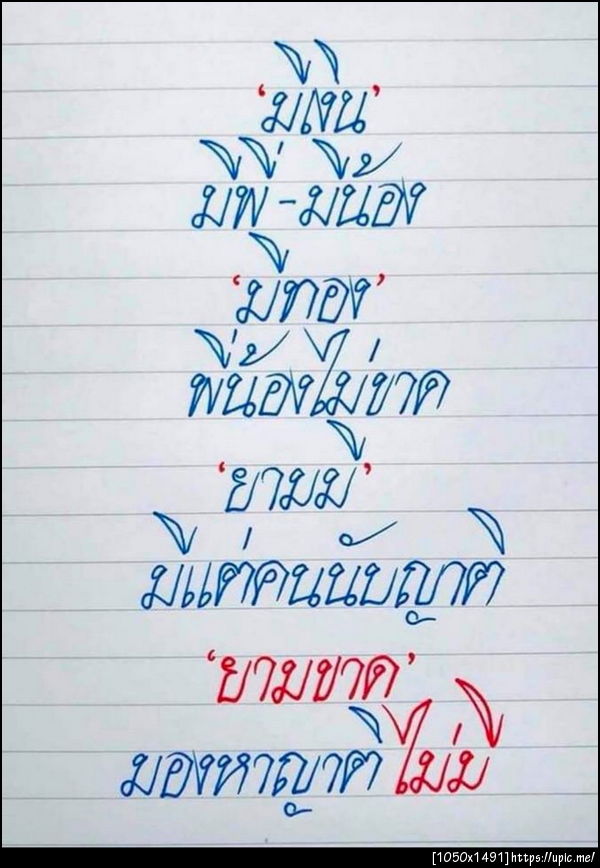 ‘มีเงิน’
มีพี่-มีน้อง
‘มีทอง’
พี่น้องไม่ขาด
‘ยามมี’
มีแต่คนนับญาติ
‘ยามขาด’
มองหาญาติไม่มี
[1050x1491]https://upic.me/